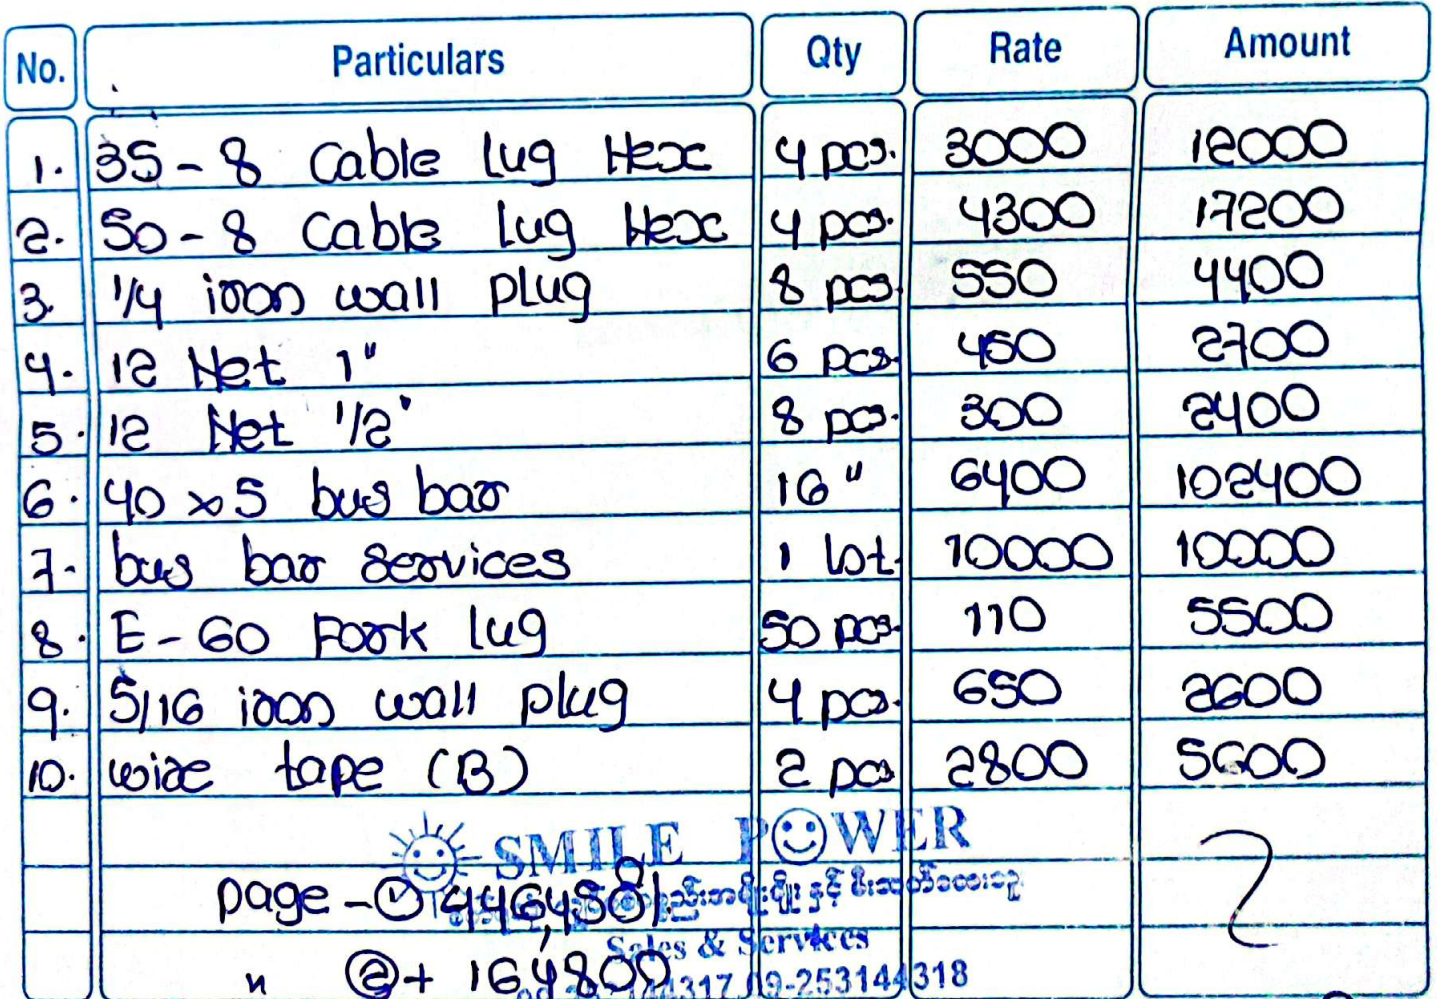 No. Particulars Qty Rate Amount
1. 35-8 Cable lug Hex 4 pcs. 3000 12000
2. 50-8 Cable lug Hex 4 pcs. 4300 17200
3. 1/4 iron wall plug 8 pcs. 550 4400
4. 12 Net 1" 6 pcs. 450 2700
5. 12 Net 1/2" 8 pcs. 300 2400
6. 40 x 5 bus bar 16" 6400 102400
7. bus bar services 1 lot. 10000 10000
8. E-60 Fork lug 50 pcs. 110 5500
9. 5/16 iron wall plug 4 pcs. 650 2600
10. wire tape (B) 2 pcs 2800 5600
SMILE POWER
page - ① 446,450/
Sales & Services
" ② + 164800
09-253144318
2